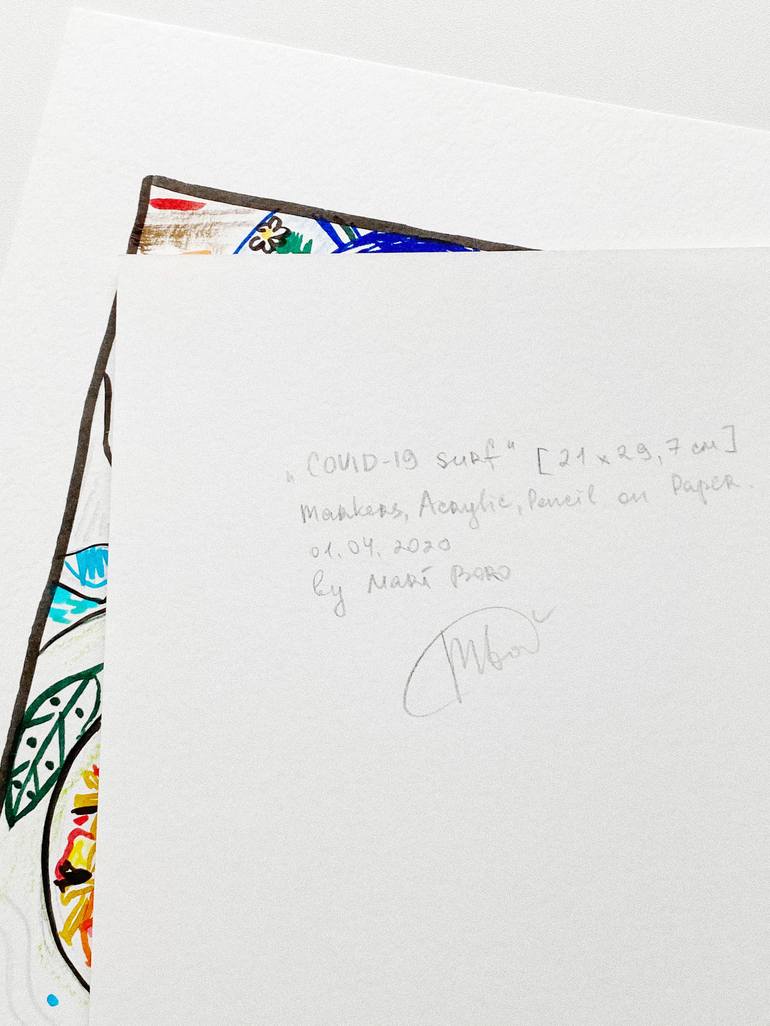 „COVID-19 surf“ [21 x 29,7 cm]
Markers, Acrylic, Pencil on Paper.
01.04.2020
by Mari Boro